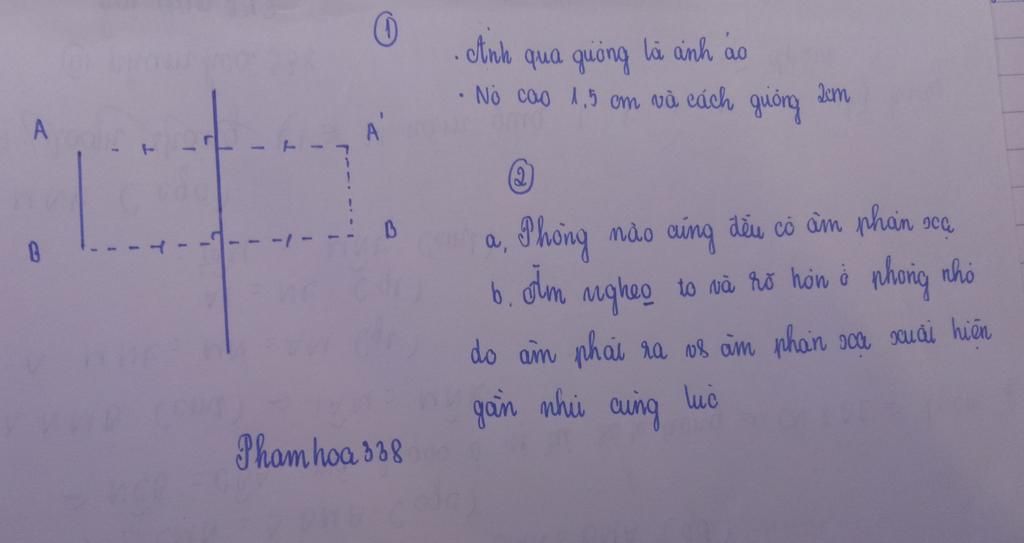 ①
. Ảnh qua gương là ảnh ảo
. Nó cao 1,5 cm và cách gương 2cm
A
A'
B
B
②
a, Phòng nào cũng đều có âm phản xạ
b. Âm nghe to và rõ hơn ở phòng nhỏ
do âm phát ra vs âm phản xạ xuất hiện
gần như cùng lúc
Phamhoa338